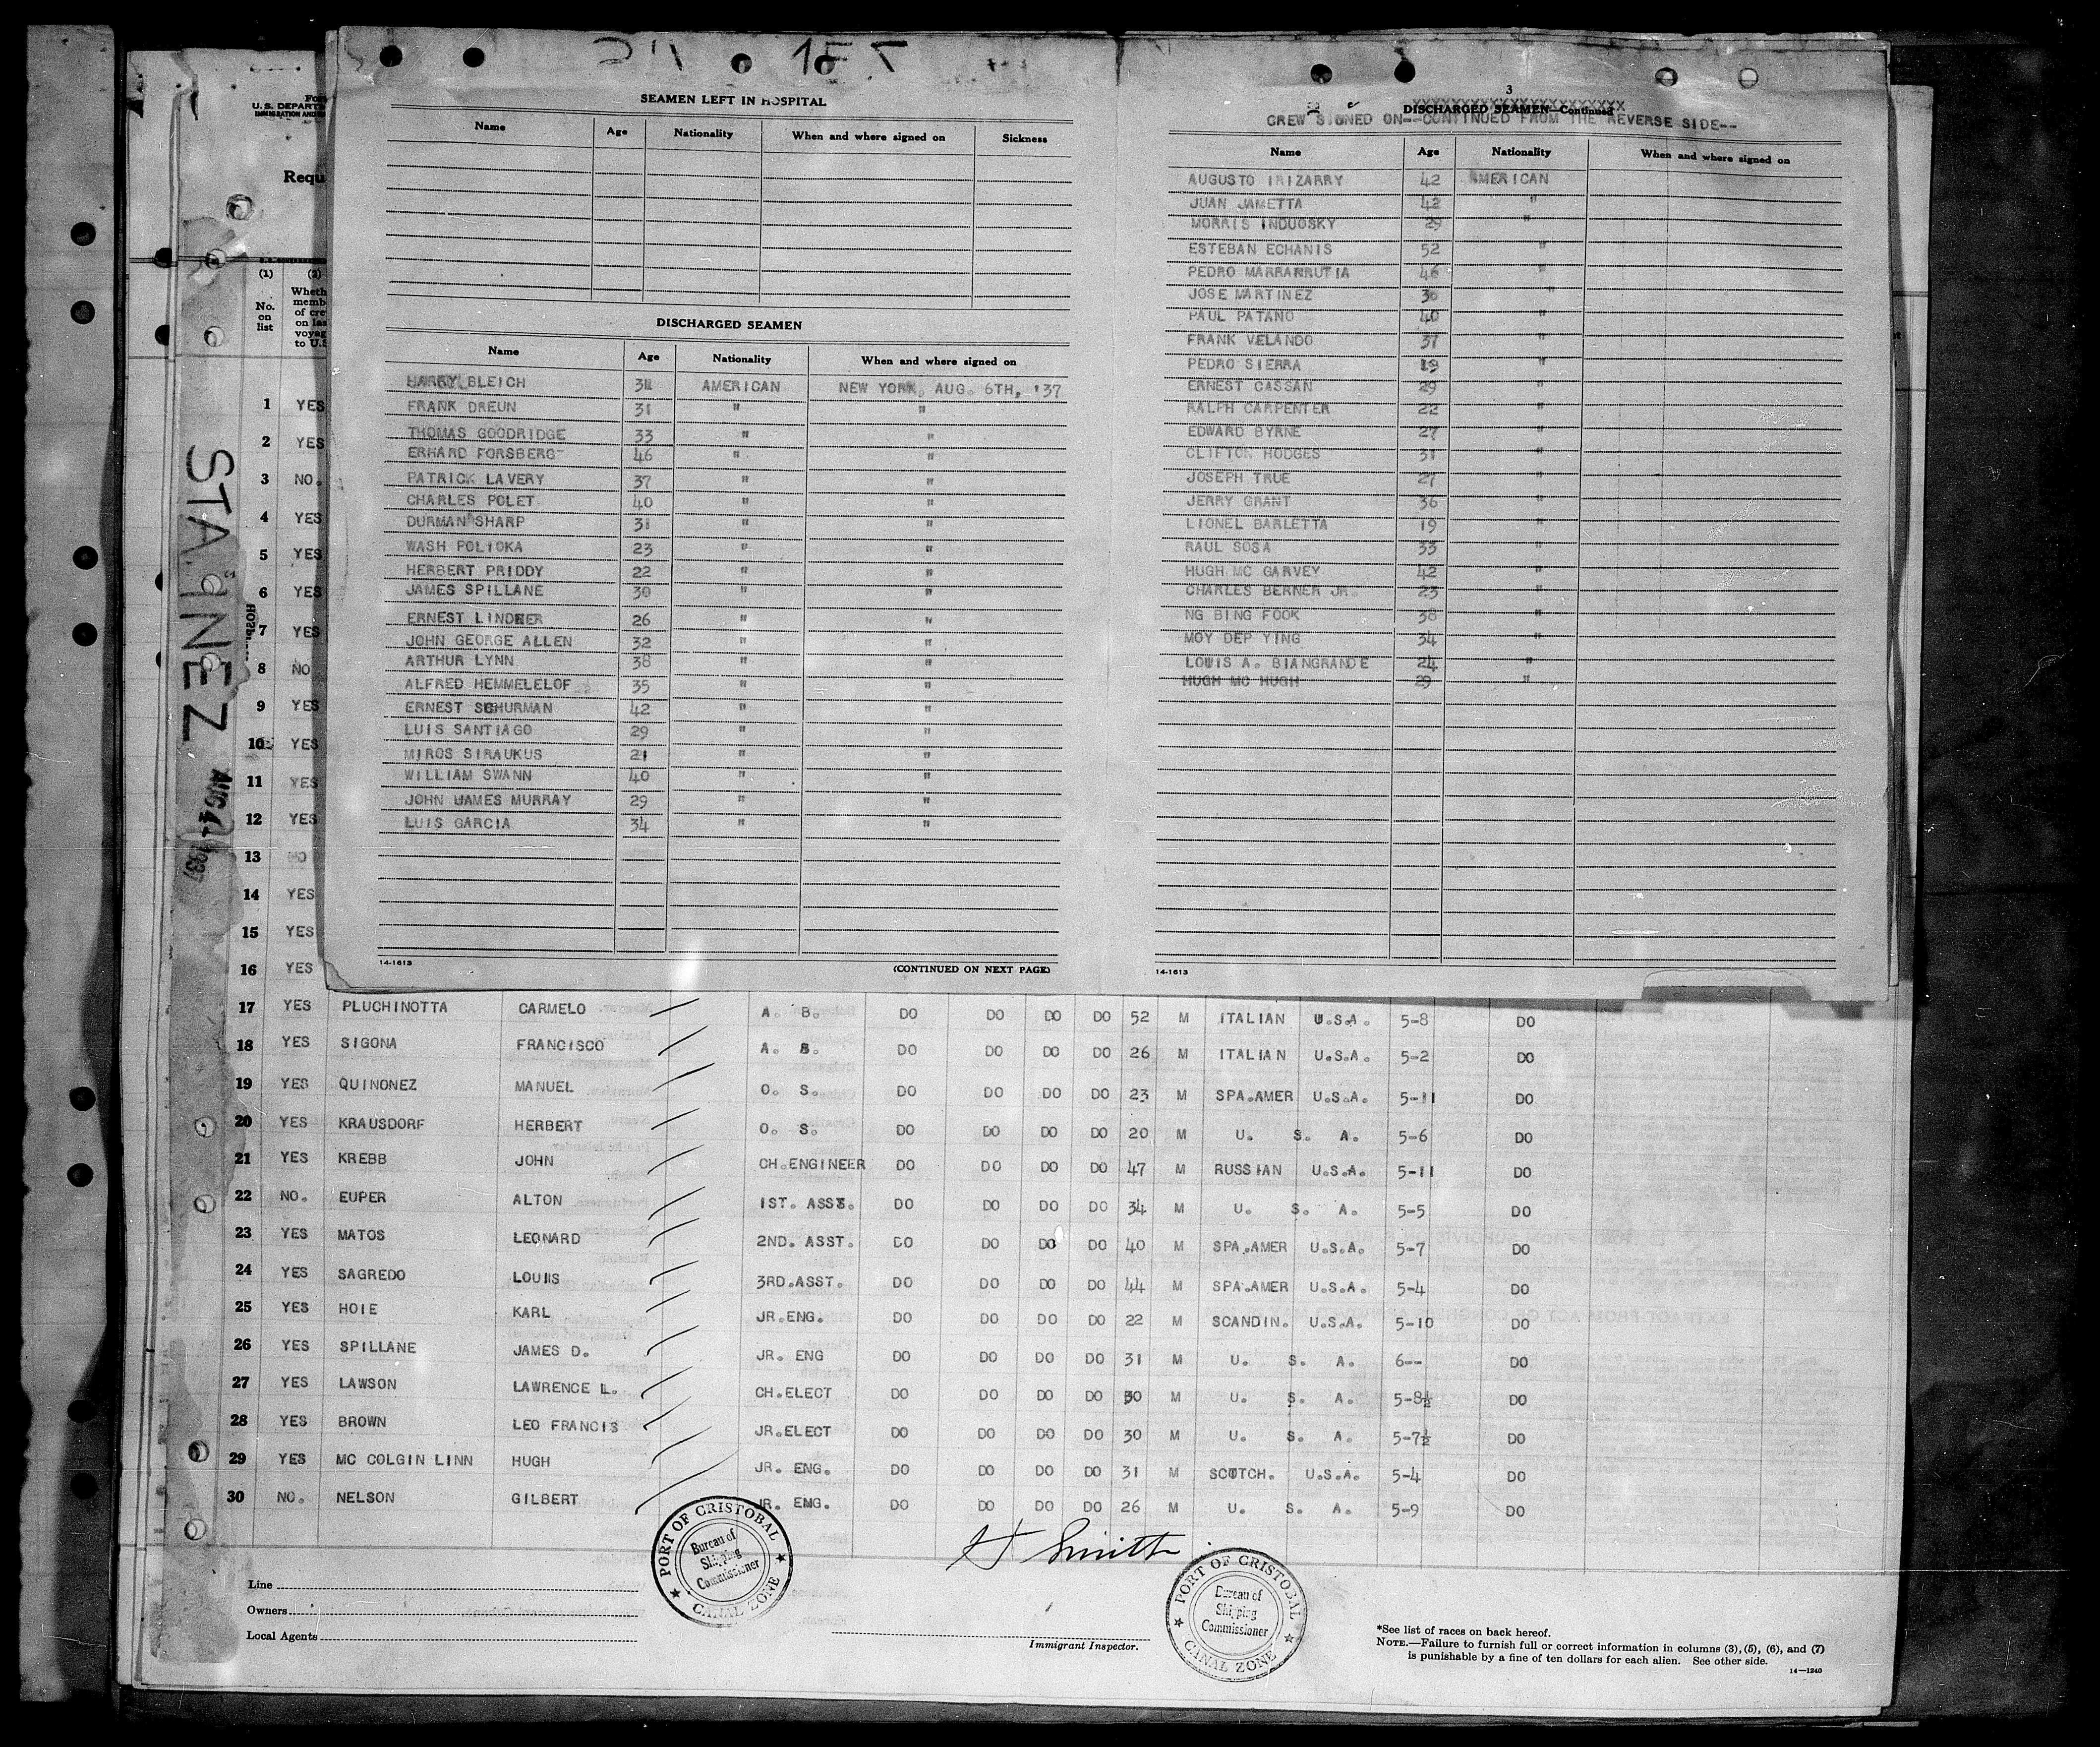 SEAMEN LEFT IN HOSPITAL
Name Age Nationality When and where signed on Sickness
DISCHARGED SEAMEN
Name Age Nationality When and where signed on
HARRY BLEICH 31 AMERICAN NEW YORK, AUG. 6TH, '37
FRANK DREUN 31 " "
THOMAS GOODRIDGE 33 " "
ERHARD FORSBERG 46 " "
PATRICK LAVERY 37 " "
CHARLES POLET 40 " "
DURMAN SHARP 31 " "
WASH POLIOKA 23 " "
HERBERT PRIDDY 22 " "
JAMES SPILLANE 30 " "
ERNEST LINDNER 26 " "
JOHN GEORGE ALLEN 32 " "
ARTHUR LYNN 38 " "
ALFRED HEMMELELOF 35 " "
ERNEST SCHURMAN 42 " "
LUIS SANTIAGO 29 " "
MIROS SIRAUKUS 21 " "
WILLIAM SWANN 40 " "
JOHN JAMES MURRAY 29 " "
LUIS GARCIA 34 " "
14-1613 (CONTINUED ON NEXT PAGE)
3
DISCHARGED SEAMEN—Continued
CREW SIGNED ON--CONTINUED FROM THE REVERSE SIDE--
Name Age Nationality When and where signed on
AUGUSTO IRIZARRY 42 AMERICAN
JUAN JAMETTA 42 "
MORRIS INDUOSKY 29 "
ESTEBAN ECHANIS 52 "
PEDRO MARRANRUTIA 46 "
JOSE MARTINEZ "
PAUL PATANO 40 "
FRANK VELANDO 37 "
PEDRO SIERRA 19 "
ERNEST CASSAN 29 "
RALPH CARPENTER 22 "
EDWARD BYRNE 27 "
CLIFTON HODGES 31 "
JOSEPH TRUE 27 "
JERRY GRANT 36 "
LIONEL BARLETTA 19 "
RAUL SOSA 33 "
HUGH MC GARVEY 42 "
CHARLES BERNER JR. 23 "
NG BING FOOK 38 "
MOY DEP YING 34 "
LOUIS A. BIANGRANDE 24 "
HUGH MC HUGH 29 "
14-1613
U.S. DEPART
Requ
(1) (2)
No. on list
Wheth
memb
of cre
on las
voyag
to U.S
1 YES
2 YES
3 NO.
4 YES
5 YES
6 YES
7 YES
8 NO
9 YES
10 YES
11 YES
12 YES
13 NO
14 YES
15 YES
16 YES
STA. INEZ
AUG 1937
17 YES PLUCHINOTTA CARMELO A. B. DO DO DO DO 52 M ITALIAN U.S.A. 5-8 DO
18 YES SIGONA FRANCISCO A. B. DO DO DO DO 26 M ITALIAN U.S.A. 5-2 DO
19 YES QUINONEZ MANUEL O. S. DO DO DO DO 23 M SPA.AMER U.S.A. 5-11 DO
20 YES KRAUSDORF HERBERT O. S. DO DO DO DO 20 M U. S. A. 5-6 DO
21 YES KREBB JOHN CH.ENGINEER DO DO DO DO 47 M RUSSIAN U.S.A. 5-11 DO
22 NO. EUPER ALTON 1ST. ASST. DO DO DO DO 34 M U. S. A. 5-5 DO
23 YES MATOS LEONARD 2ND. ASST. DO DO DO DO 40 M SPA.AMER U.S.A. 5-7 DO
24 YES SAGREDO LOUIS 3RD.ASST. DO DO DO DO 44 M SPA.AMER U.S.A. 5-4 DO
25 YES HOIE KARL JR.ENG. DO DO DO DO 22 M SCANDIN. U.S.A. 5-10 DO
26 YES SPILLANE JAMES D. JR. ENG DO DO DO DO 31 M U. S. A. 6-- DO
27 YES LAWSON LAWRENCE L. CH.ELECT DO DO DO DO 30 M U. S. A. 5-8½ DO
28 YES BROWN LEO FRANCIS JR.ELECT DO DO DO DO 30 M U. S. A. 5-7½ DO
29 YES MC COLGIN LINN HUGH JR. ENG. DO DO DO DO 31 M SCOTCH. U.S.A. 5-4 DO
30 NO. NELSON GILBERT JR. ENG. DO DO DO DO 26 M U. S. A. 5-9 DO
H Smith
PORT OF CRISTOBAL
Bureau of Shipping Commissioner
CANAL ZONE
PORT OF CRISTOBAL
Bureau of Shipping Commissioner
CANAL ZONE
Line
Owners
Local Agents
Immigrant Inspector.
*See list of races on back hereof.
NOTE.—Failure to furnish full or correct information in columns (3), (5), (6), and (7)
is punishable by a fine of ten dollars for each alien. See other side.
14—1240